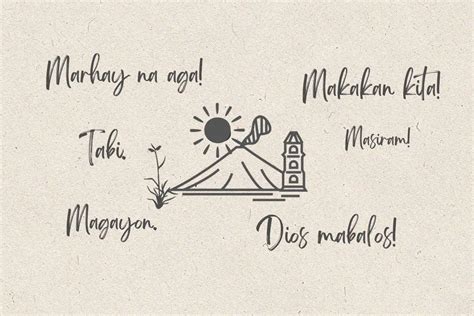 Marhay na aga!
Makakan kita!
Tabi.
Masiram!
Magayon.
Dios mabalos!